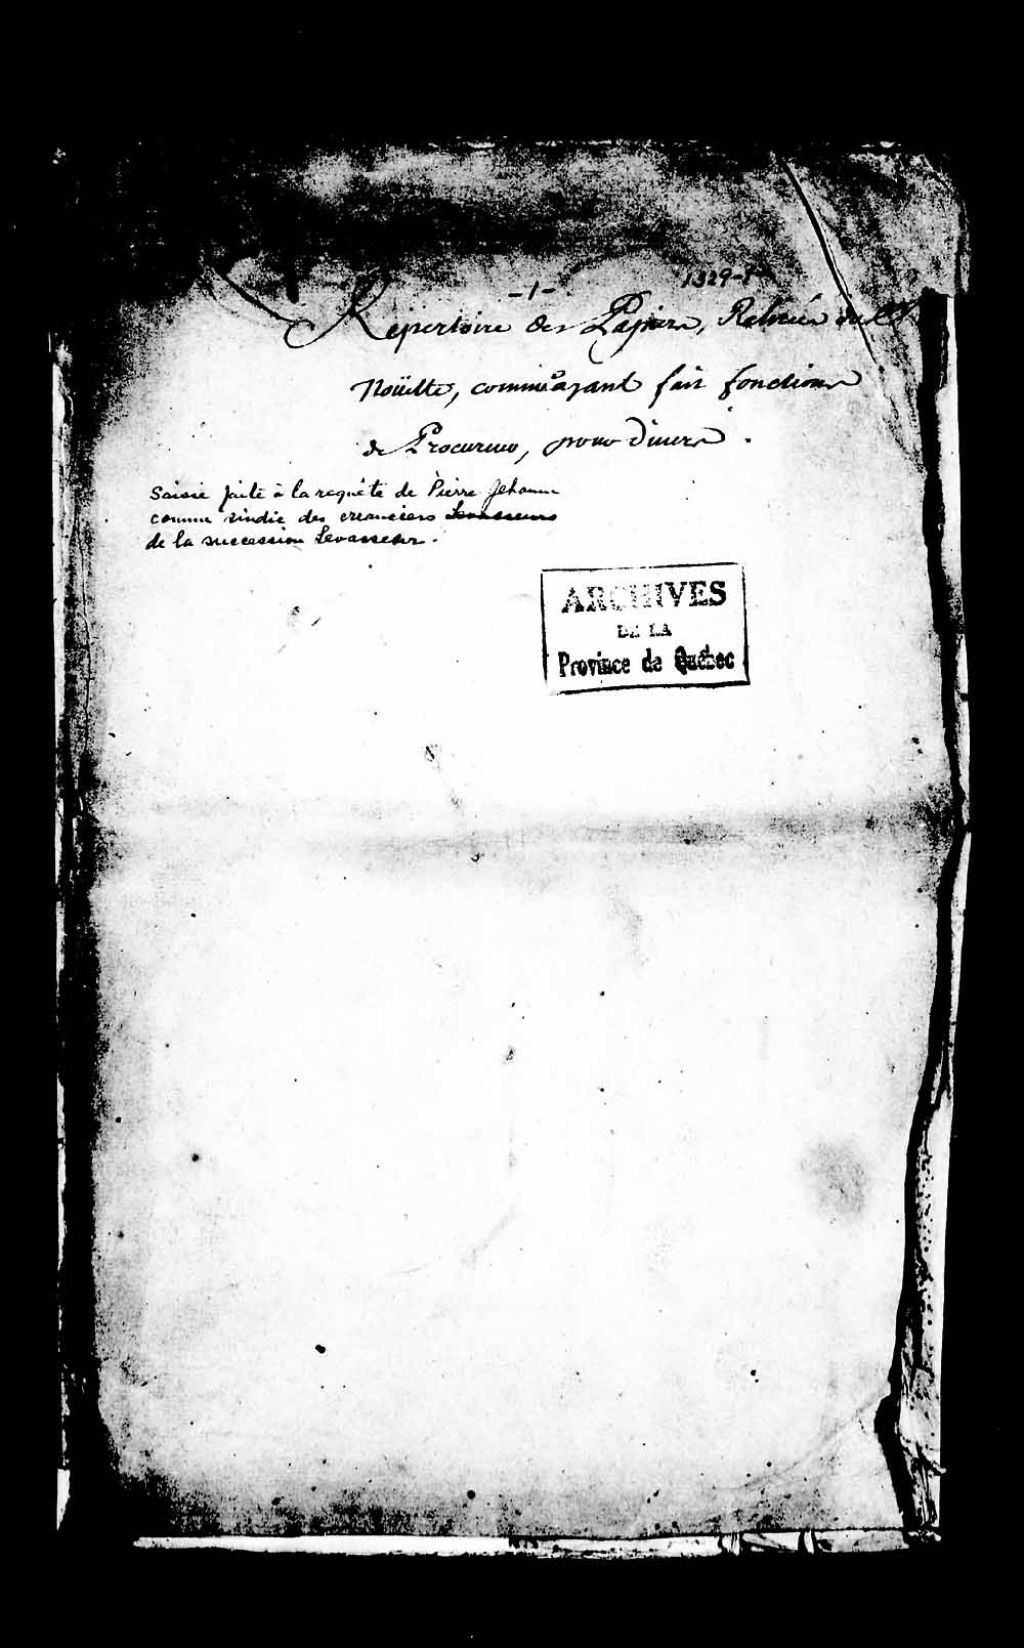 -1-
1329-1
Repertoire des Papiers, Retirée du Sr.
Noüette, comme ayant fait fonctions
de Procureur, pour divers.
Saisie faite à la requête de Pierre Jehanne
comme sindic des creanciers Levasseurs
de la succession Levasseur.
ARCHIVES
DE LA
Province de Québec